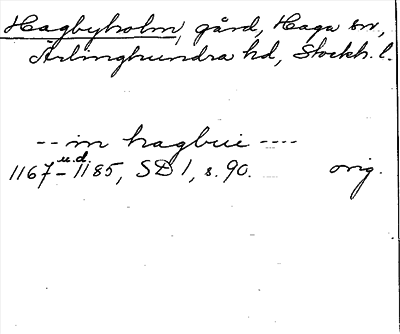 Hagbyholm, gård, Haga sn,
Ärlinghundra hd, Stockh. l.
-- in hagbui ----
1167 - 1185, SD 1, s. 90. orig.
u.d.